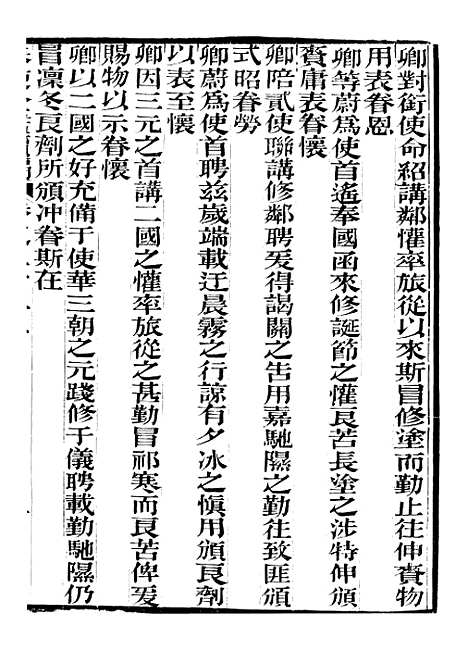 卿對銜使命紹講鄰懽率旅從以來斯冒修塗而勤止往伸賚物
用表眷恩
卿等蔚爲使首遙奉國函來修誕節之懽良苦長塗之涉特伸頒
賚庸表眷懷
卿陪貳使聯講修鄰聘爰得謁關之告用嘉馳隰之勤往致匪頒
式昭眷勞
卿蔚爲使首聘兹歲端載迂晨霧之行諒有夕冰之愼用頒良劑
以表至懷
卿因三元之首講二國之懽率旅從之甚勤冒祁寒而良苦俾爰
賜物以示眷懷
卿以二國之好充備于使華三朝之元踐修于儀聘載勤馳隰仍
冒凜冬良劑所頒沖眷斯在